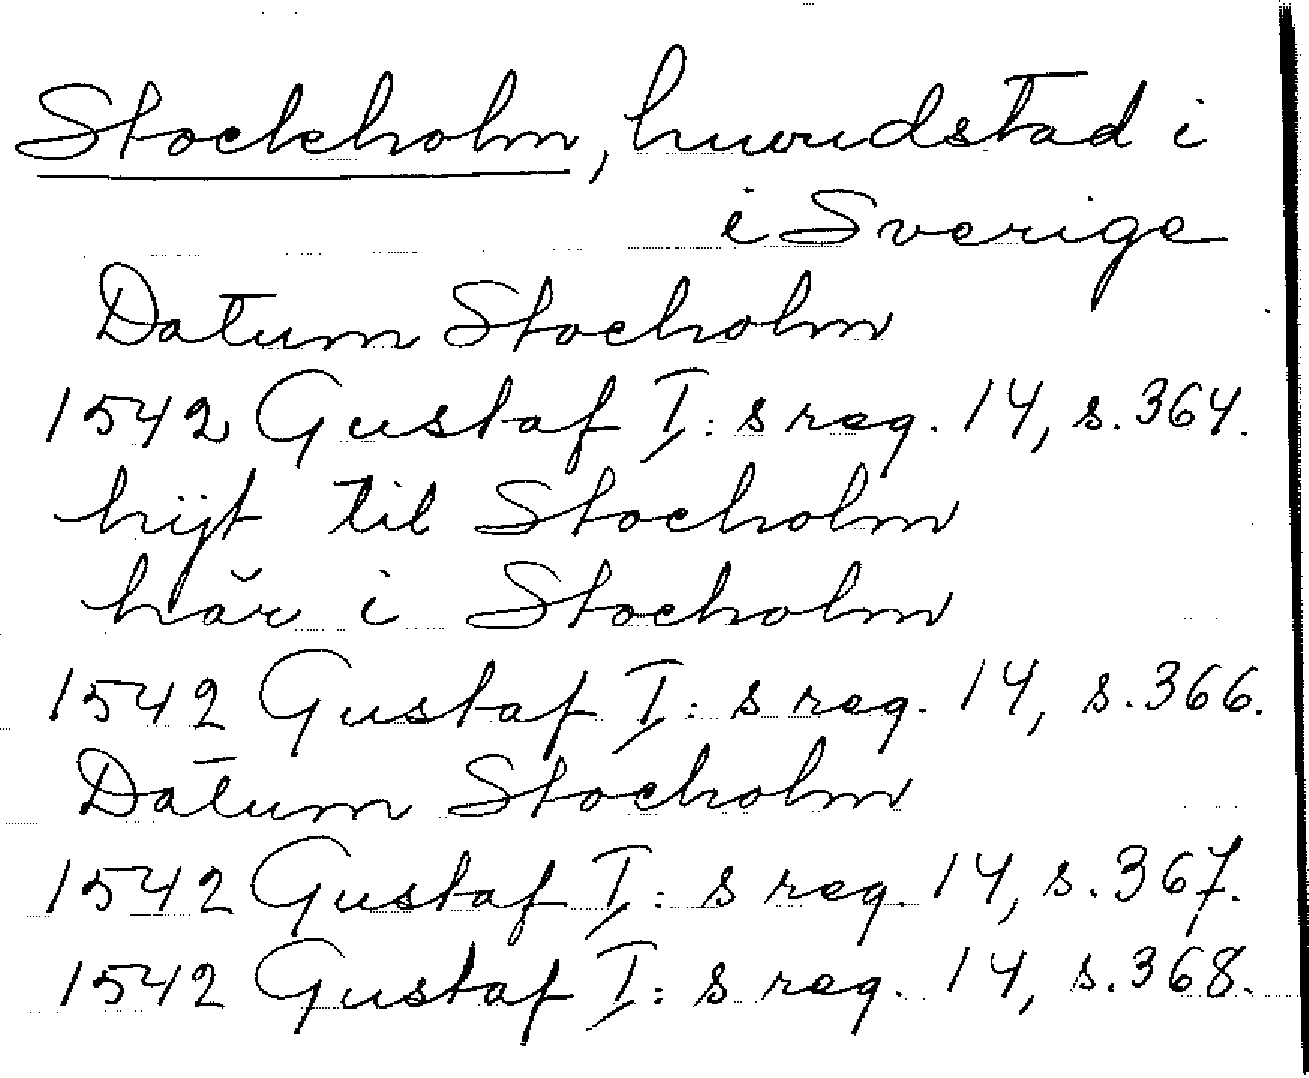 Stockholm, huvudstad i
i Sverige
Datum Stocholm
1542 Gustaf I:s reg. 14, s. 364.
hijt til Stocholm
här i Stocholm
1542 Gustaf I:s reg. 14, s. 366.
Datum Stocholm
1542 Gustaf I:s reg. 14, s. 367.
1542 Gustaf I:s reg. 14, s. 368.